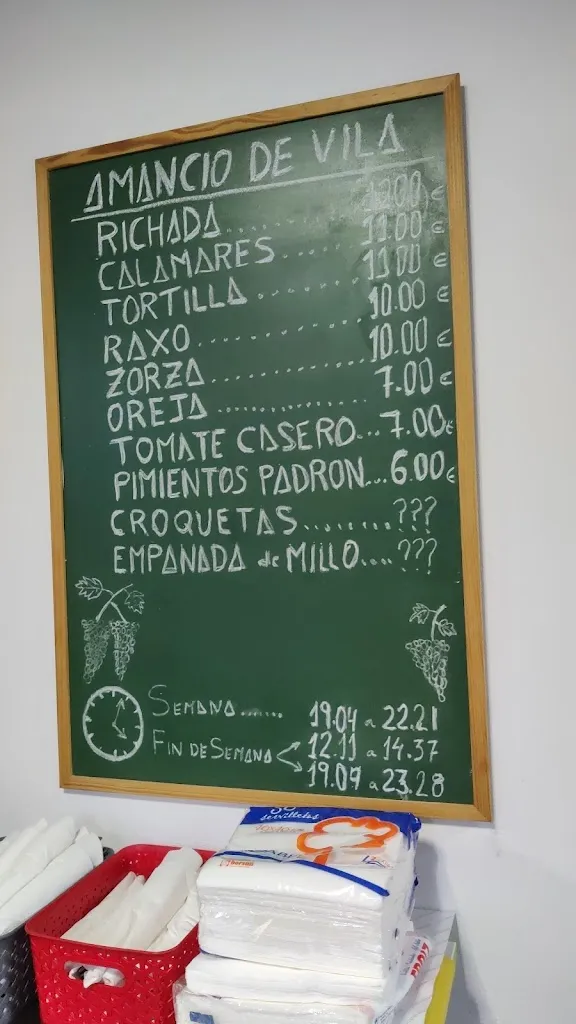 AMANCIO DE VILA
RICHADA........ 12.00 €
CALAMARES........ 11.00 €
TORTILLA........ 11.00 €
RAXO............ 10.00 €
ZORZA............ 10.00 €
OREJA............ 7.00 €
TOMATE CASERO... 7.00 €
PIMIENTOS PADRON... 6.00 €
CROQUETAS........ ???
EMPANADA de MILLO.... ???
SEMANA....... 19.04 a 22.21
FIN DE SEMANA 12.11 a 14.37
19.07 a 23.28
servilletas